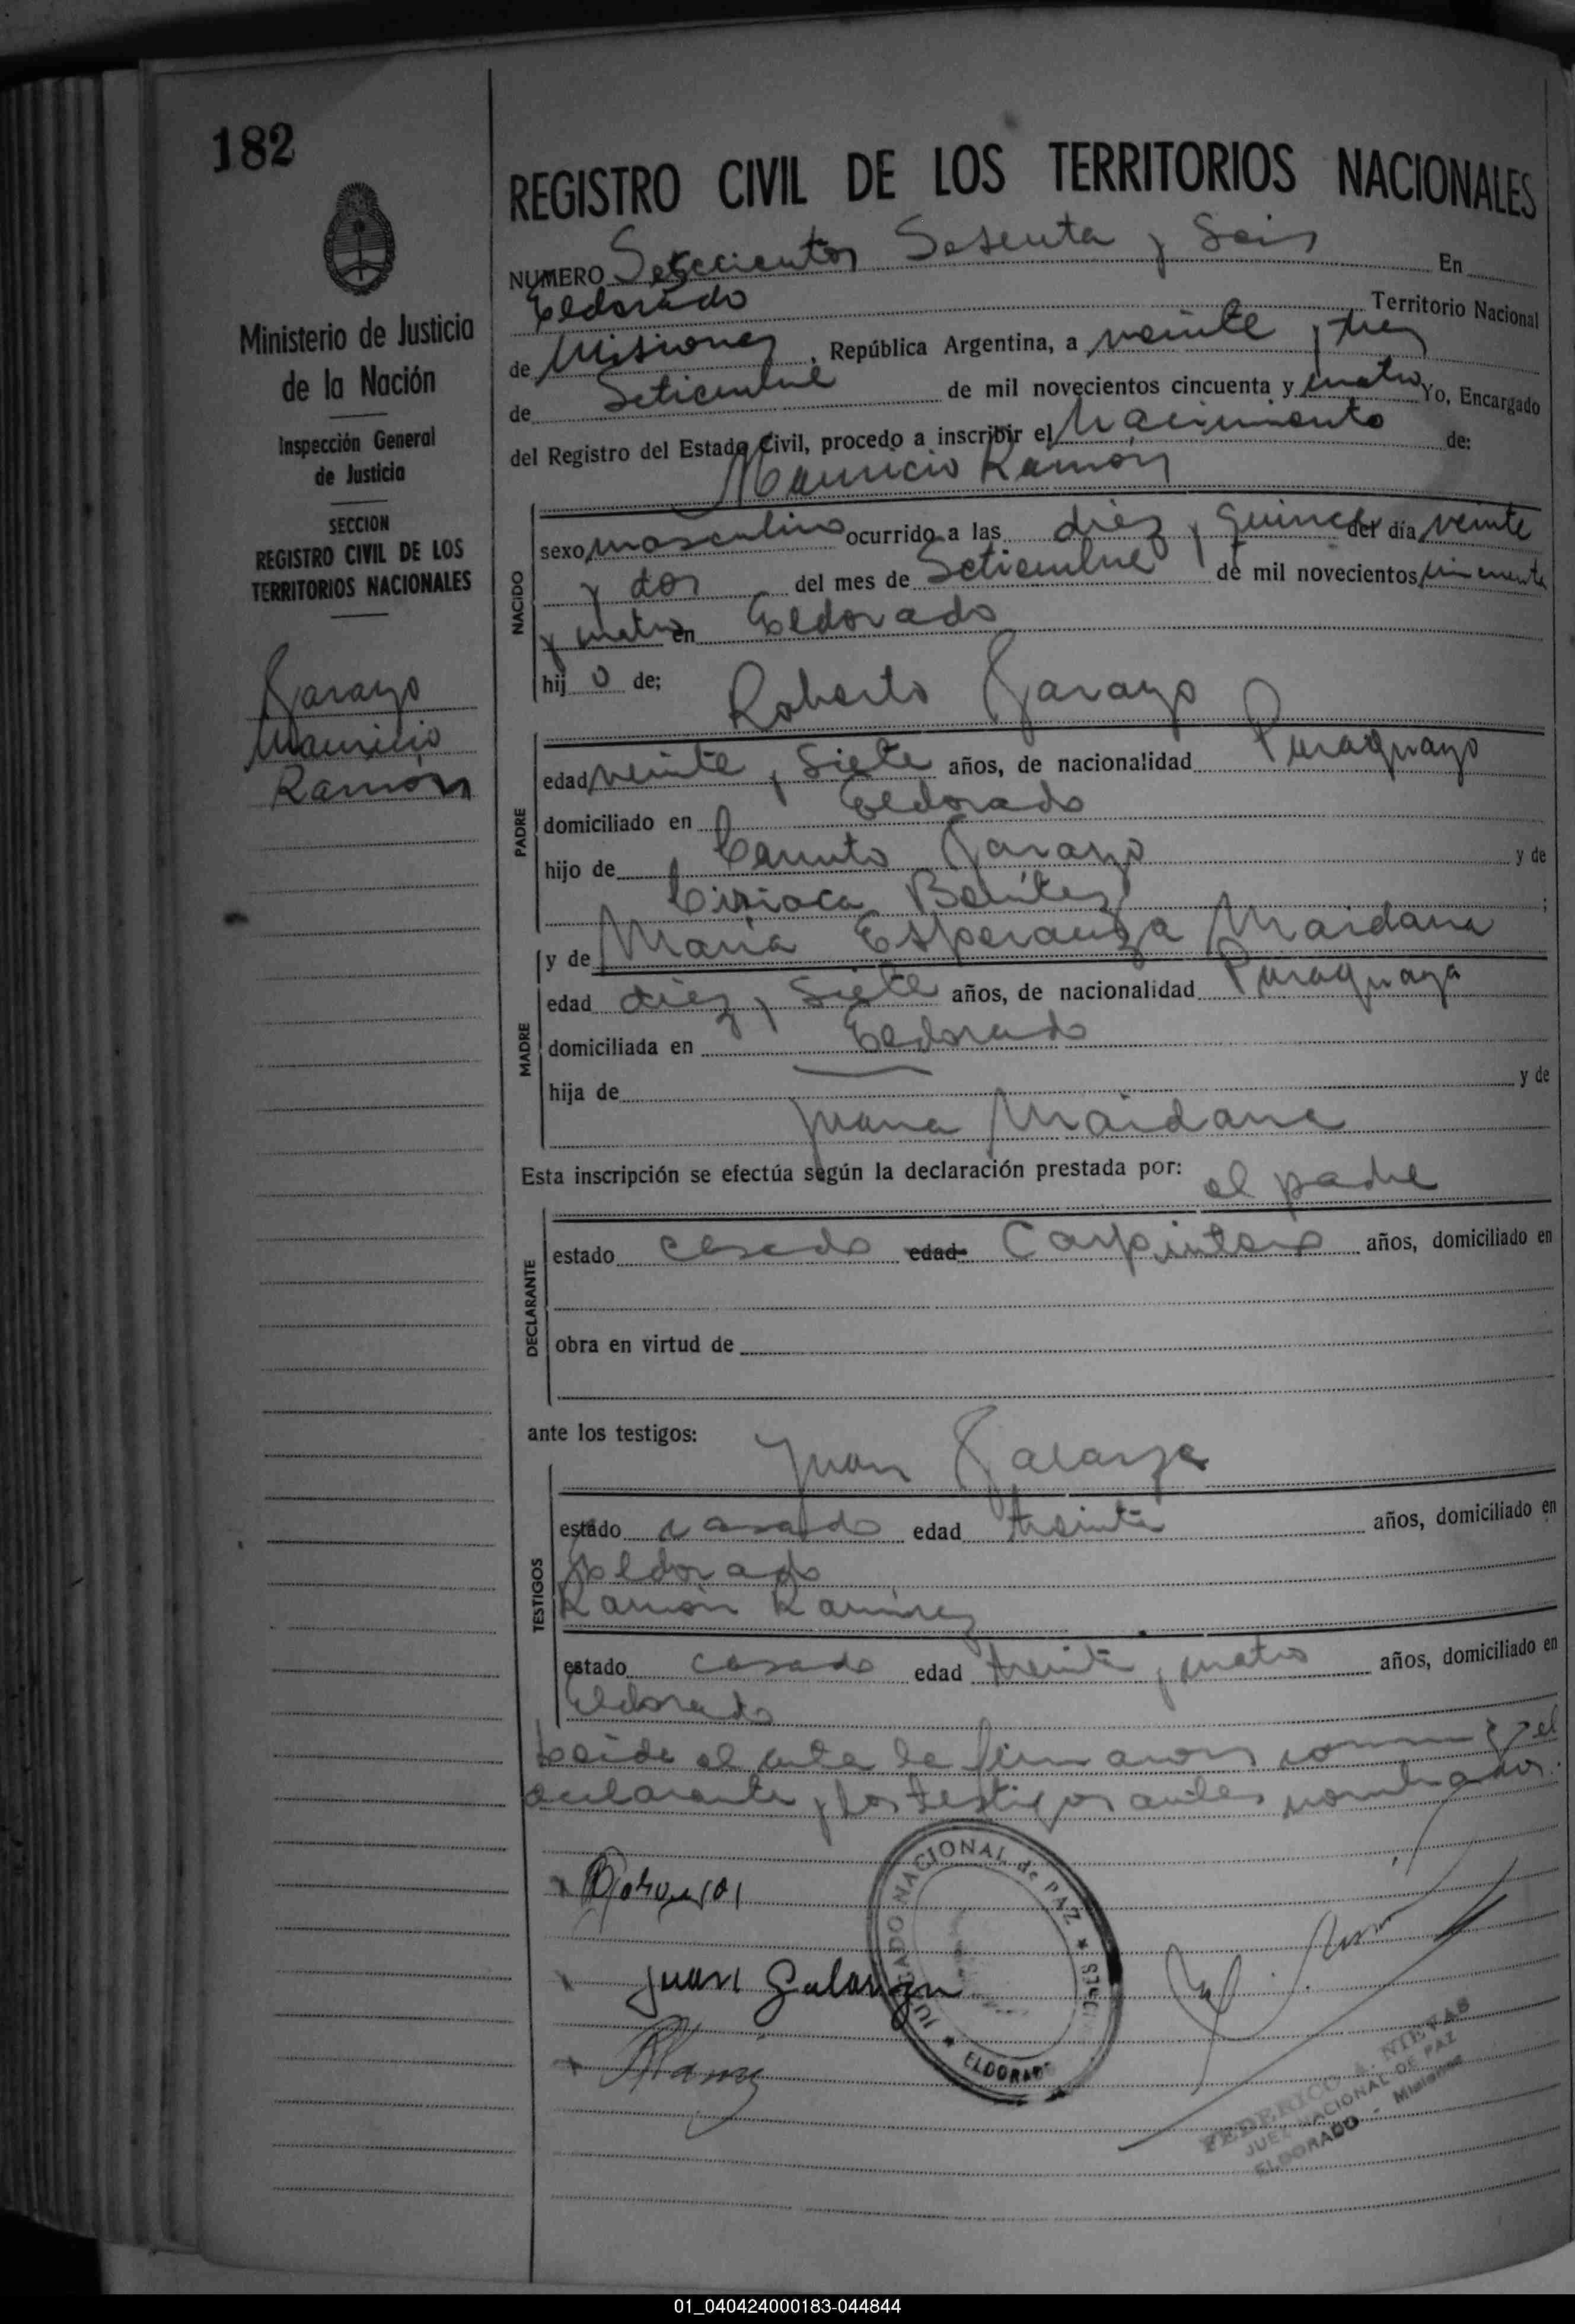 182
REGISTRO CIVIL DE LOS TERRITORIOS NACIONALES
Ministerio de Justicia
de la Nación
Inspección General
de Justicia
SECCION
REGISTRO CIVIL DE LOS
TERRITORIOS NACIONALES
Garayo
Mauricio
Ramón
NUMERO Setecientos Sesenta y Seis En
Eldorado Territorio Nacional
de Misiones, República Argentina, a veinte y tres
de Setiembre de mil novecientos cincuenta y cuatro Yo, Encargado
del Registro del Estado Civil, procedo a inscribir el Nacimiento de:
Mauricio Ramón
NACIDO
sexo masculino ocurrido a las diez y quince del día veinte
y dos del mes de Setiembre de mil novecientos cincuenta
y cuatro en Eldorado
hij o de;
Roberto Garayo
PADRE
edad veinte y Siete años, de nacionalidad Paraguayo
domiciliado en Eldorado
hijo de Canuto Garayo y de
Ciriaca Benítez ;
MADRE
y de María Esperanza Maidana
edad diez y Siete años, de nacionalidad Paraguaya
domiciliada en Eldorado
hija de y de
Juana Maidana
Esta inscripción se efectúa según la declaración prestada por:
el padre
DECLARANTE
estado casado edad Carpintero años, domiciliado en
obra en virtud de
ante los testigos:
Juan Galarza
TESTIGOS
estado casado edad treinta años, domiciliado en
Eldorado
Ramón Ramírez
estado casado edad treinta y cuatro años, domiciliado en
Eldorado
Leida el acta la firmaron conmigo el
declarante y los testigos antes nombrados.
Juan Galarza
JUZGADO NACIONAL de PAZ
ELDORADO
FEDERICO A. NIETAS
JUEZ NACIONAL DE PAZ
ELDORADO - Misiones
01_040424000183-044844